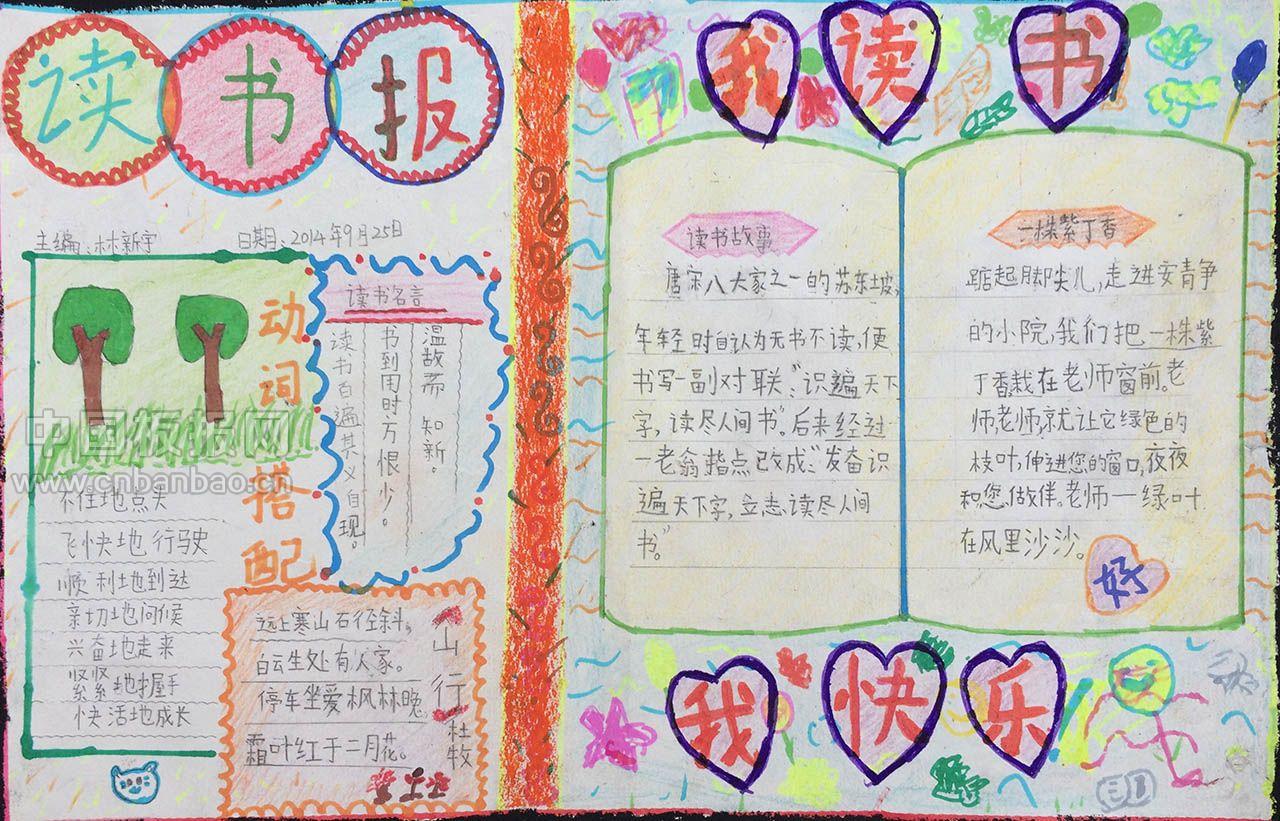 读书报
主编:林新宇
日期:2014年9月25日
动词搭配
不住地点头
飞快地行驶
顺利地到达
亲切地问候
兴奋地走来
紧紧地握手
快活地成长
读书名言
温故而知新。
书到用时方恨少。
读书百遍其义自现。
《山行》
杜牧
远上寒山石径斜,
白云生处有人家。
停车坐爱枫林晚,
霜叶红于二月花。
我读书
读书故事
唐宋八大家之一的苏东坡,
年轻时自认为无书不读,便
书写一副对联“识遍天下
字,读尽人间书”。后来经过
一老翁指点改成“发奋识
遍天下字,立志读尽人间
书”。
一株紫丁香
踮起脚尖儿,走进安青争
的小院,我们把一株紫
丁香栽在老师窗前。老
师,老师,就让它绿色的
枝叶,伸进您的窗口,夜夜
和您做伴。老师——绿叶
在风里沙沙。
好
我快乐
中国板报网
www.cnbanbao.cn